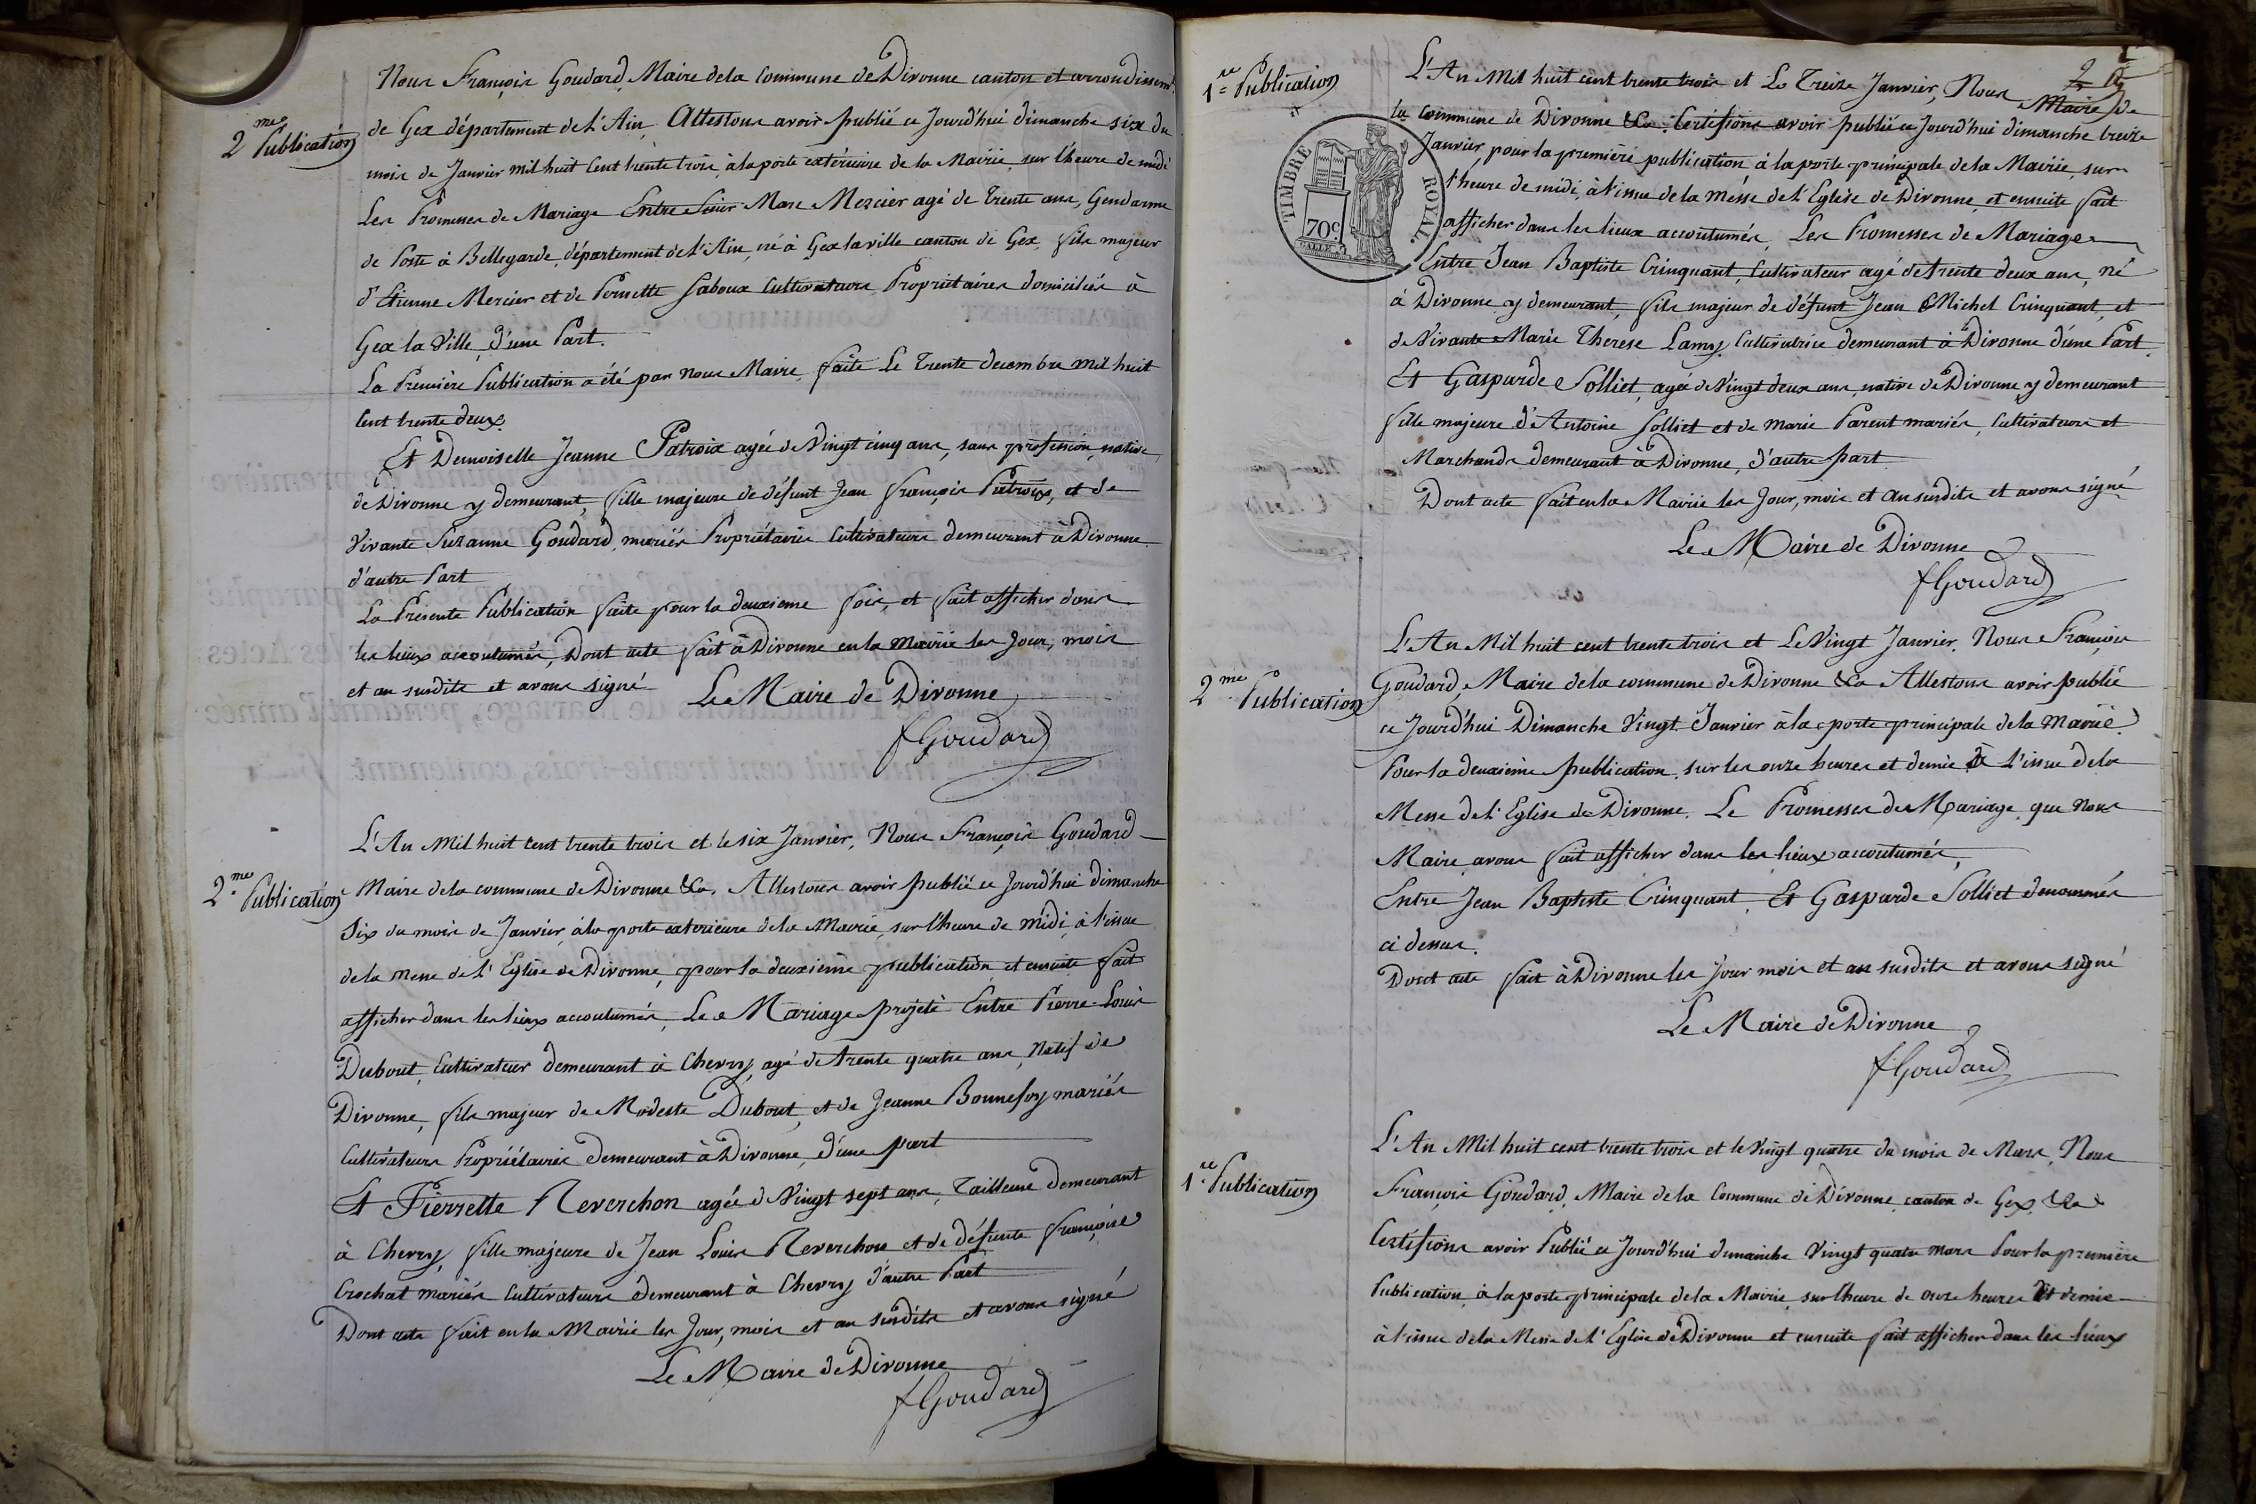 2me Publication
Nous François Goudard, Maire de la Commune de Divonne canton et arrondissemt
de Gex département de l'Ain, Attestons avoir publié ce Jourd'hui dimanche six du
mois de Janvier mil huit Cent trente trois, à la porte extérieure de la Mairie, sur l'heure de midi
Les Promesses de Mariage Entre Sieur Marc Mercier agé de trente ans, Gendarme
de Poste à Bellegarde, département de l'Ain, né à Gex la ville canton de Gex, fils majeur
d'Etienne Mercier et de Pernette Saboux Cultivateurs Propriétaires domiciliés à
Gex la Ville, d'une Part.
La Première Publication a été par Nous Maire, faite Le Trente décembre mil huit
Cent trente deux.
Et Demoiselle Jeanne Patroix agée de Vingt cinq ans, sans profession, native
de Divonne y demeurant, fille majeure de défunt Jean François Patroix, et de
Vivante Suzanne Goudard, mariés Propriétaires Cultivateurs demeurant à Divonne
d'autre Part
La Présente Publication faite pour la deuxieme fois, et fait afficher dans
les lieux accoutumés, Dont acte fait à Divonne en la Mairie les Jour, mois
et an susdits et avons signé
Le Maire de Divonne
fGoudard
2me Publication
L'An Mil huit Cent trente trois et le six Janvier, Nous François Goudard
Maire de la commune de Divonne &a, Attestons avoir publié ce Jourd'hui dimanche
Six du mois de Janvier, à la porte exterieure de la Mairie, sur l'heure de midi, à l'issue
de la Messe de l'Eglise de Divonne, pour la deuxième publication, et ensuite fait
afficher dans les lieux accoutumés, Le Mariage projeté Entre Pierre-Louis
Dubout, Cultivateur demeurant à Chevry, agé de trente quatre ans, Natif de
Divonne, fils majeur de Modeste Dubout, et de Jeanne Bonnefoy mariés
Cultivateurs Propriétaires demeurant à Divonne, d'une part
Et Pierrette Reverchon agée de Vingt sept ans, Tailleuse demeurant
à Chevry, fille majeure de Jean Louis Reverchon et de défunte françoise
Crochat mariés Cultivateurs demeurant à Chevry d'autre Part
Dont acte fait en la Mairie les Jour, mois et an susdits et avons signé
Le Maire de Divonne
fGoudard
2
1re Publication
TIMBRE ROYAL.
70c
L'An Mil huit cent trente trois et Le Treize Janvier, Nous Maire de
la commune de Divonne &a, Certifions avoir publié ce Jourd'hui dimanche treize
Janvier, pour la première publication, à la porte principale de la Mairie, sur
l'heure de midi, à l'issue de la Messe de l'Eglise de Divonne, et ensuite fait
afficher dans les lieux accoutumés, Les Promesses de Mariage
Entre Jean Baptiste Crinquant, Cultivateur agé de trente deux ans, né
à Divonne y demeurant, fils majeur de défunt Jean Michel Crinquant, et
de Vivante Marie Therese Lamy, Cultivatrice demeurant à Divonne d'une Part
Et Gasparde Solliet, agée de Vingt deux ans, native de Divonne y demeurant
fille majeure d'Antoine Solliet et de Marie Parent mariés, Cultivateurs et
Marchands demeurant à Divonne, d'autre part
Dont acte fait en la Mairie les Jour, mois et an susdits et avons signé
Le Maire de Divonne
fGoudard
2me Publication
L'An Mil huit cent trente trois et Le Vingt Janvier, Nous François
Goudard, Maire de la commune de Divonne &a Attestons avoir publié
ce Jourd'hui Dimanche Vingt Janvier à la porte principale de la Mairie
Pour la deuxième publication, sur les onze heures et demie à l'issue de la
Messe de l'Eglise de Divonne. Le Promesses de Mariage que Nous
Maire avons fait afficher dans les lieux accoutumés,
Entre Jean Baptiste Crinquant, Et Gasparde Solliet denommés
ci dessus.
Dont acte fait à Divonne les Jour mois et an susdits et avons signé
Le Maire de Divonne
fGoudard
1re Publication
L'An Mil huit cent trente trois et le Vingt quatre du mois de Mars, Nous
François Goudard, Maire de la Commune de Divonne canton de Gex, &a
Certifions avoir Publié ce Jourd'hui dimanche Vingt quatre mars Pour la première
Publication, à la porte principale de la Mairie, sur l'heure de onze heures Et demie
à l'issue de la Messe de l'Eglise de Divonne et ensuite fait afficher dans les lieux